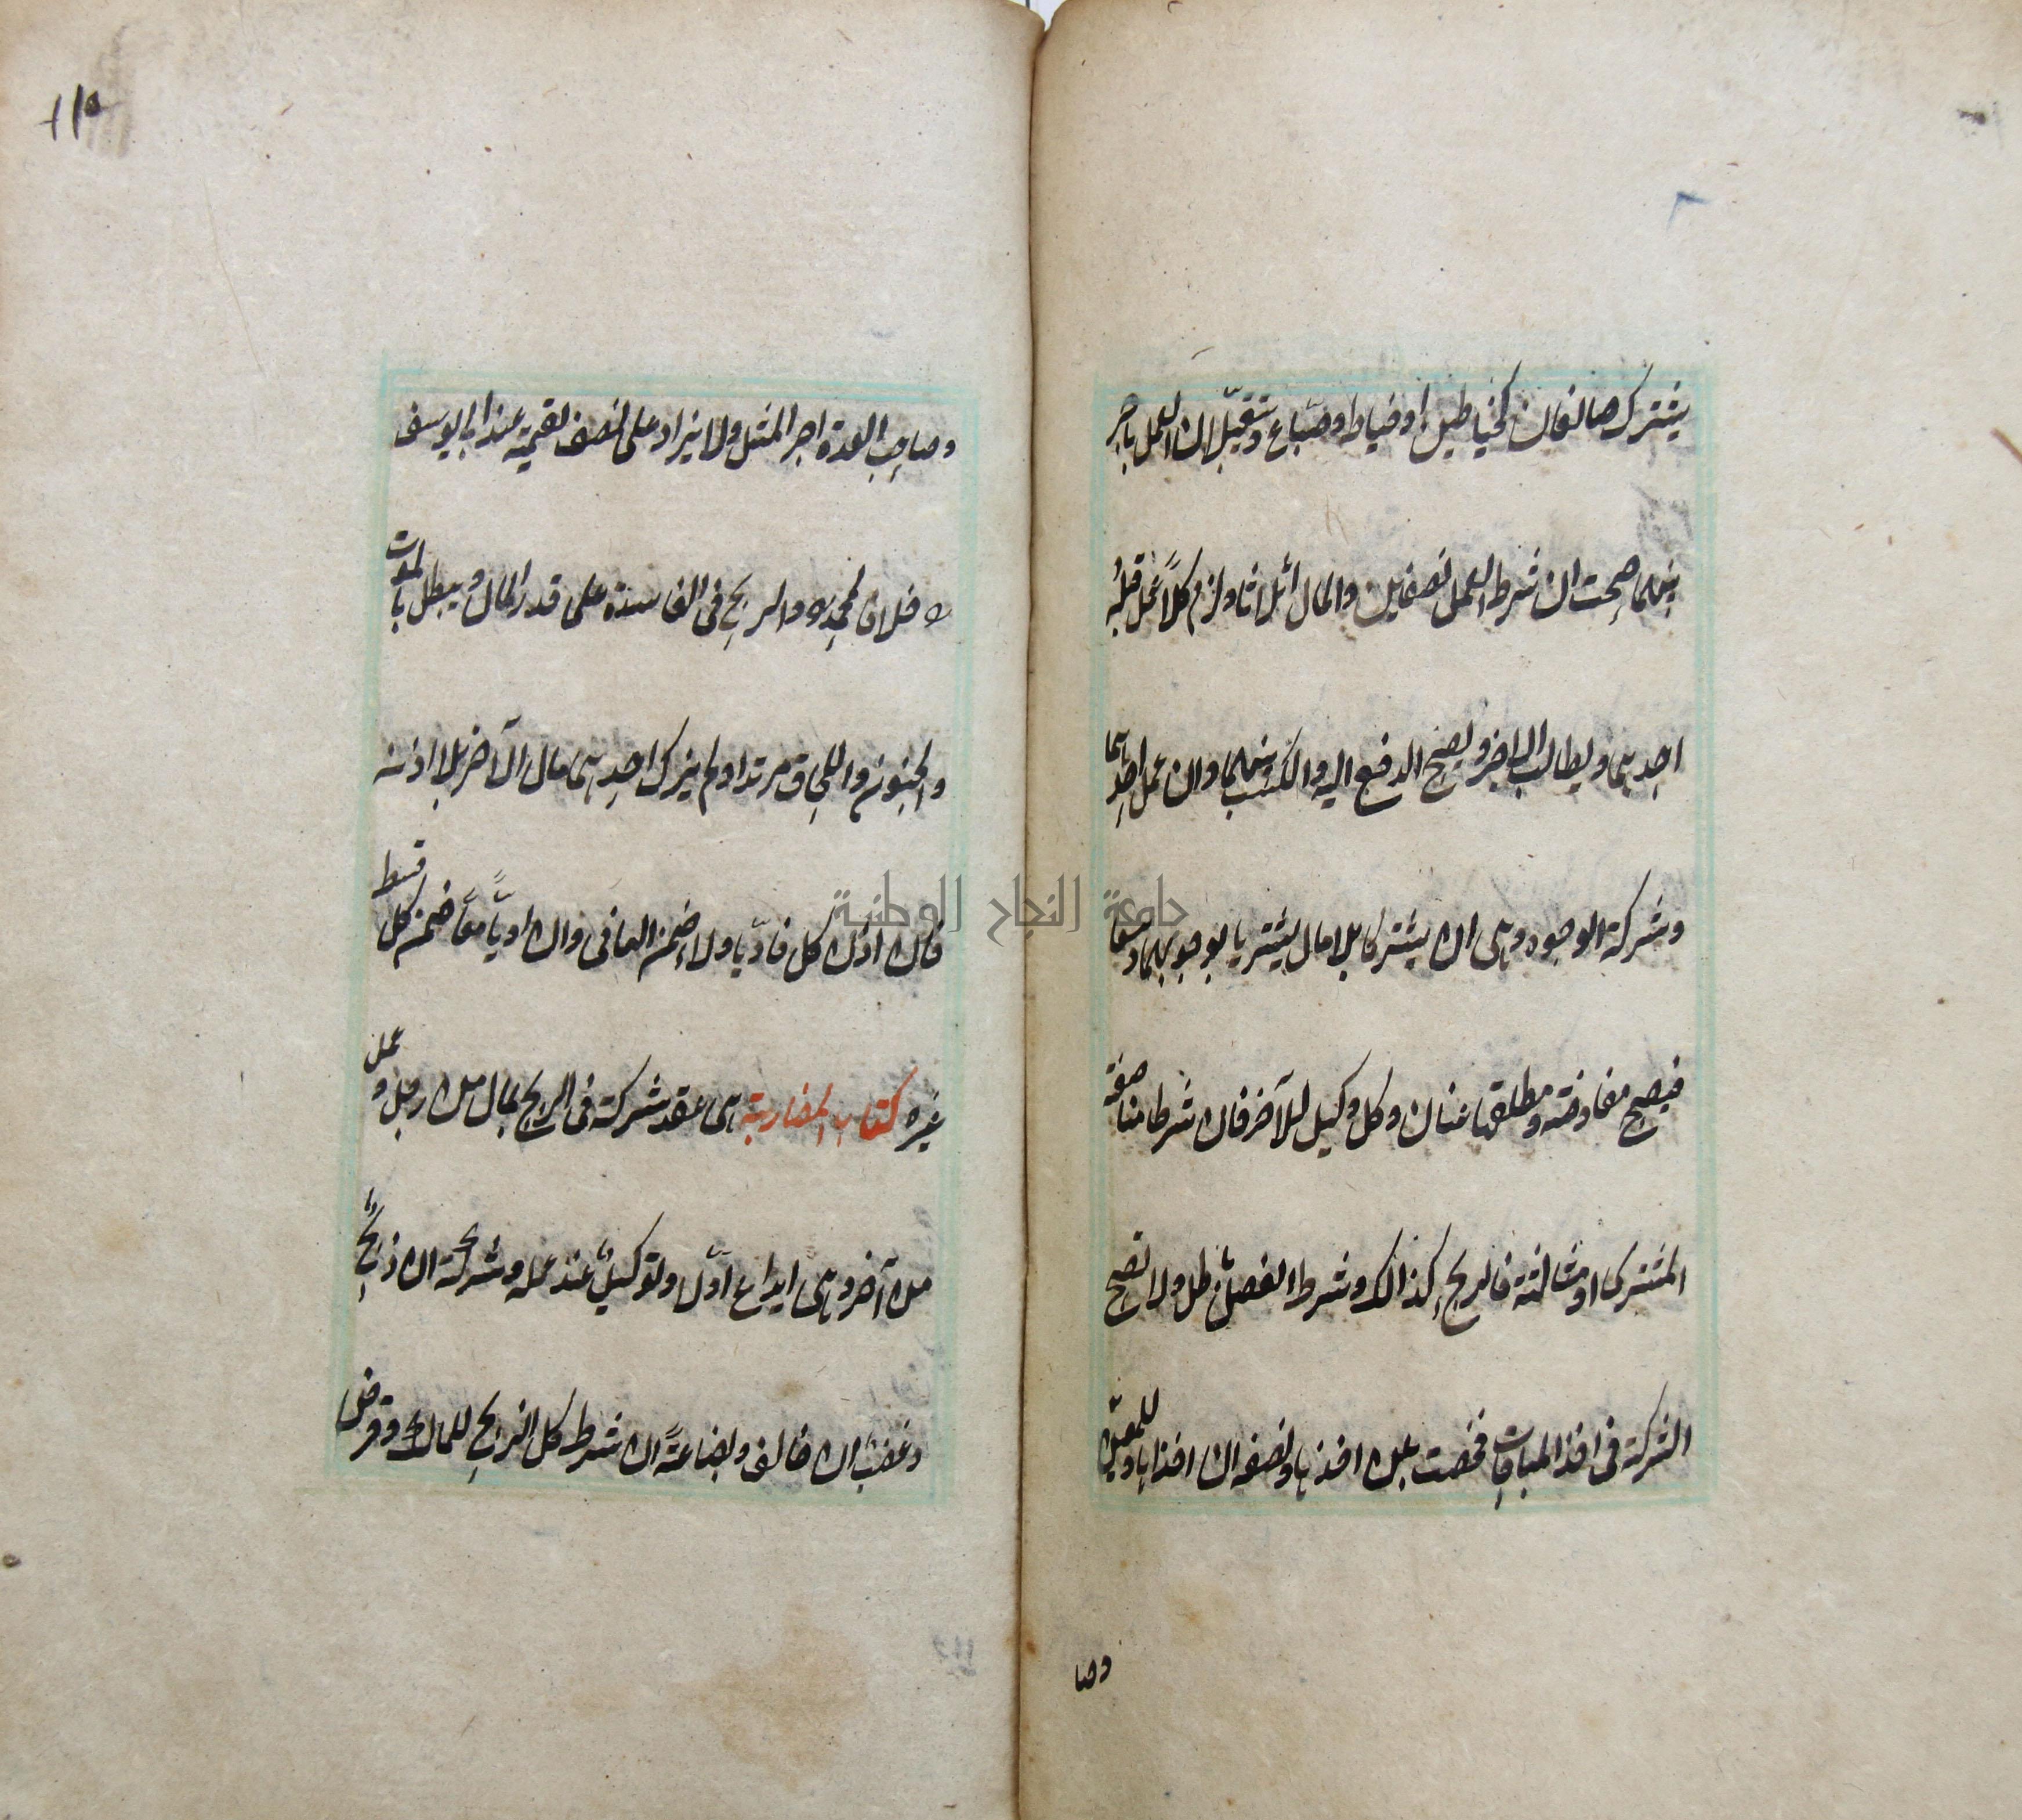 يشترك صانعان كخياطين او خياط وصباغ ويتقبلان العمل باجر
بينهما صحت ان شرط العمل نصفين والمال اثلاثا ولزم كلا عمل قبله
احدهما ويطالب الاجر ويصح الدفع اليه والكسب بينهما وان عمل احدهما
وشركة الوجوه وهى ان يشتركا بلا مال يشتريا بوجوههما
فيصح مفاوضة ومطلقها عنان وكل وكيل للآخر فان شرطا مناصفة
المشترى او مثالثة فالربح كذالك وشرط الفضل باطل ولا تصح
الشركة فى اخذ المباحات فخصت بمن اخذها ونصفه ان اخذاها وللمعين
وصا
١١٥
وصاحب العدة اجر المثل ولا يزاد على نصف القيمة عند ابى يوسف
ره خلافا لمحمد ره والربح فى الفاسدة على قدر المال ويبطل بالموت
والجنون واللحاق مرتدا ولم يزك احدهما مال الآخر بلا اذنه
فان اذن كل فاديا ولاء ضمن الثانى وان اديا معا ضمن كل قسط
غيره كتاب المضاربة هى عقد شركة فى الربح بمال من رجل وعمل
من آخر وهى ايداع اولا وتوكيل عند عمله وشركة ان ربح
وغصب ان خالف وبضاعة ان شرط كل الربح للمالك وقرض
جامعة النجاح الوطنية